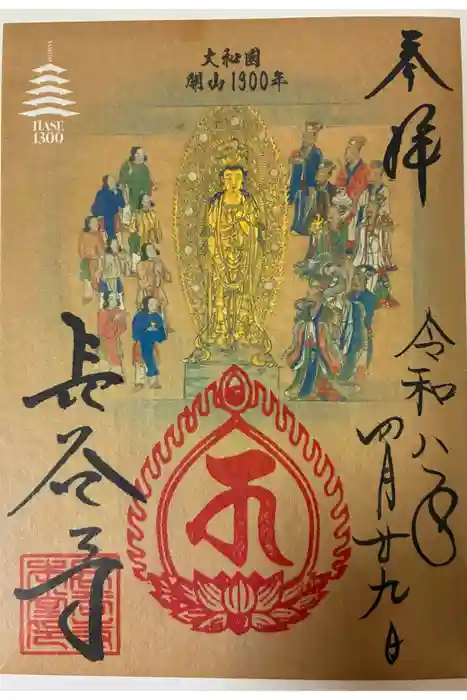 奉拝
大和國
開山1300年
HASE
1300
令和八年
四月廿九日
長谷寺